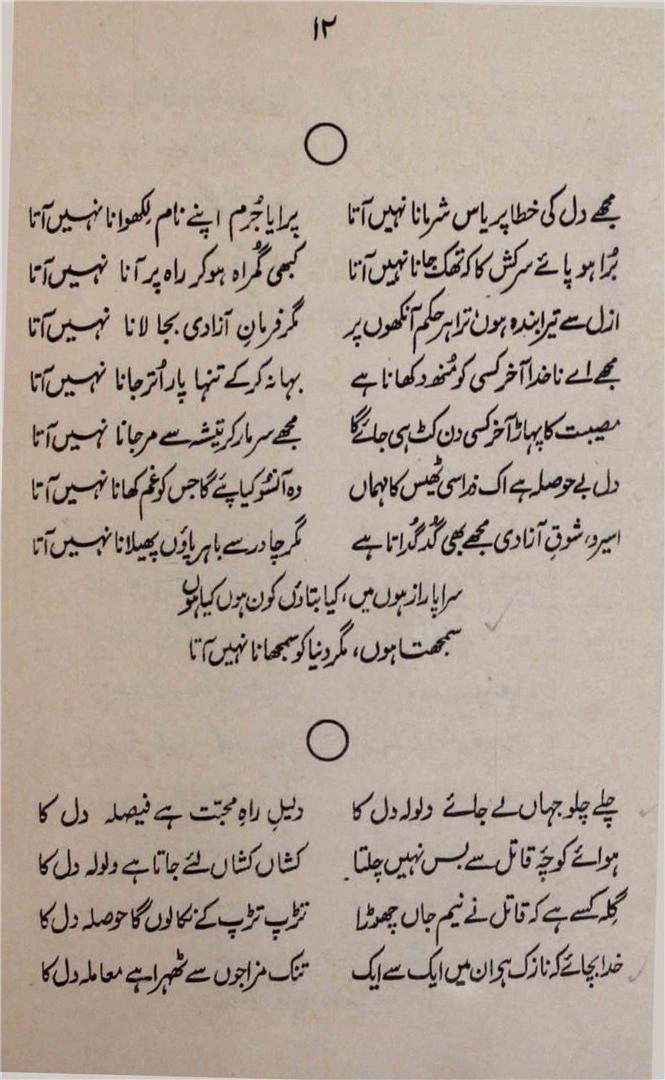 ۱۲
مجھے دل کی خطا پر یاس شرمانا نہیں آتا پرایا جُرم اپنے نام لِکھوانا نہیں آتا
بُرا ہو پائے سرکش کا کہ تھک جانا نہیں آتا کبھی گُمراہ ہو کر راہ پر آنا نہیں آتا
ازل سے تیرا بندہ ہوں، ترا ہر حکم آنکھوں پر مگر فرمانِ آزادی بجا لانا نہیں آتا
مجھے اے ناخدا آخر کسی کو مُنھ دکھانا ہے بہانہ کرکے تنہا پار اُتر جانا نہیں آتا
مصیبت کا پہاڑ آخر کسی دن کٹ ہی جائے گا مجھے سر مار کر تیشہ سے مر جانا نہیں آتا
دل بے حوصلہ ہے اک ذرا سی ٹھیس کا مہماں وہ آنسُو کیا پئے گا جس کو غم کھانا نہیں آتا
اسیرو، شوقِ آزادی مجھے بھی گُدگُداتا ہے مگر چادر سے باہر پاؤں پھیلانا نہیں آتا
سراپا راز ہوں میں، کیا بتاؤں کون ہوں کیا ہوں
سمجھتا ہوں، مگر دنیا کو سمجھانا نہیں آتا
چلے چلو جہاں لے جائے ولولہ دل کا دلیلِ راہِ محبّت ہے فیصلہ دل کا
ہوائے کوچۂ قاتل سے بس نہیں چلتا کشاں کشاں لئے جاتا ہے ولولہ دل کا
گِلہ کسے ہے کہ قاتل نے نیم جاں چھوڑا تڑپ تڑپ کے نکالوں گا حوصلہ دل کا
خدا بچائے کہ نازک ہے ان میں ایک سے ایک تنک مزاجوں سے ٹھہرا ہے معاملہ دل کا